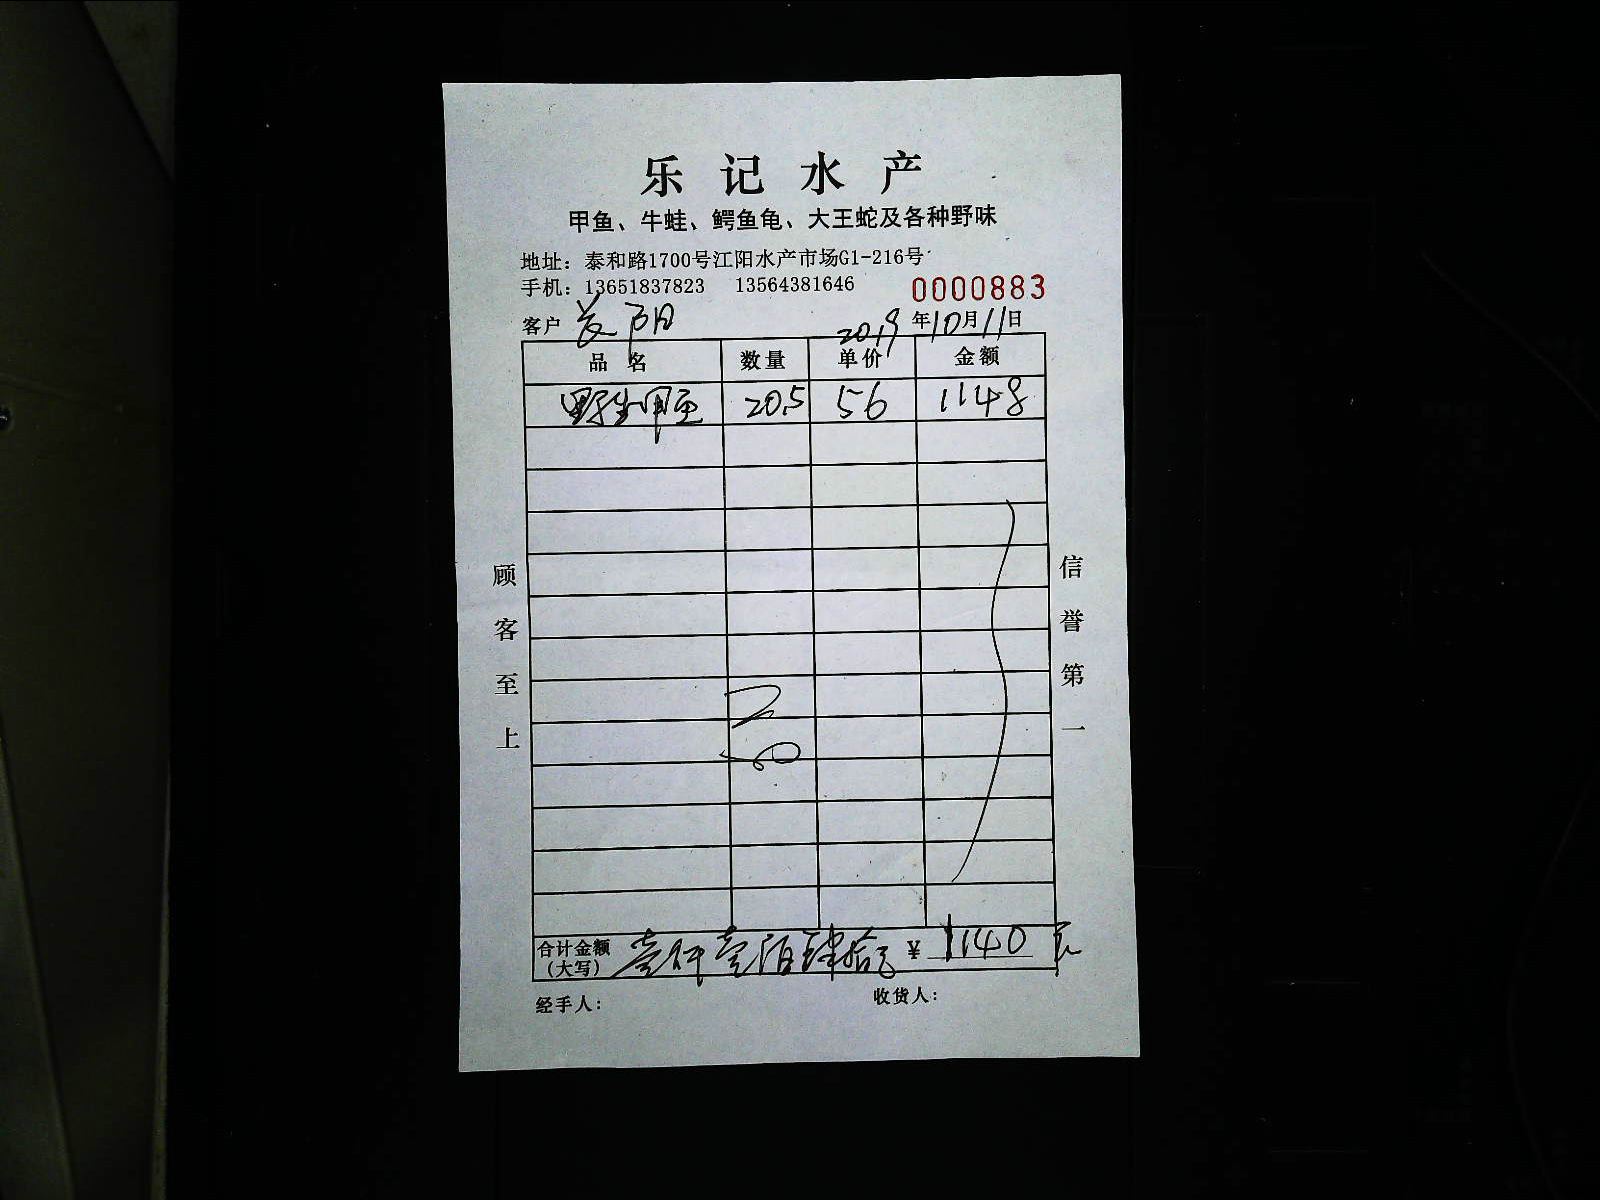 乐记水产
甲鱼、牛蛙、鳄鱼龟、大王蛇及各种野味
地址：泰和路1700号江阳水产市场G1-216号
手机：13651837823 13564381646 0000883
客户 阳 2019年10月11日
品名 数量 单价 金额
野生甲鱼 20.5 56 1148
顾客至上
信誉第一
合计金额（大写） 壹仟壹佰肆拾元 ¥ 1140元
经手人： 收货人：